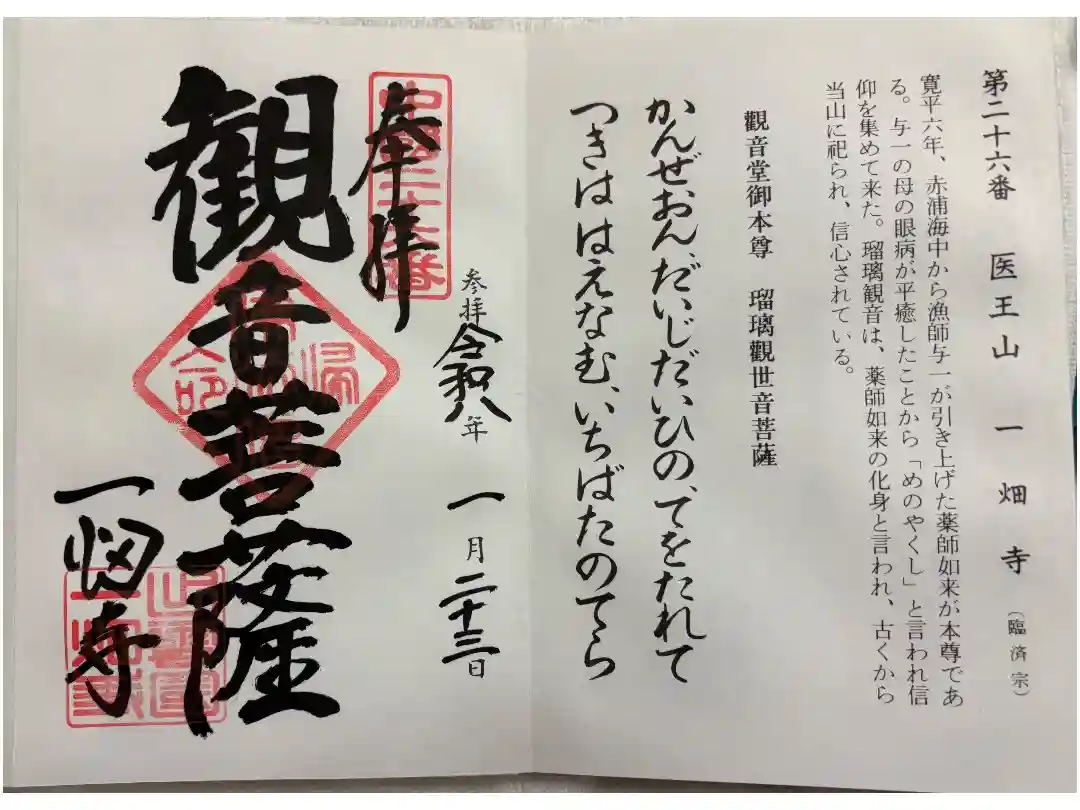 第二十六番　医王山　一畑寺（臨済宗）
寛平六年、赤浦海中から漁師与一が引き上げた薬師如来が本尊であ
る。与一の母の眼病が平癒したことから「めのやくし」と言われ信
仰を集めて来た。瑠璃観音は、薬師如来の化身と言われ、古くから
当山に祀られ、信心されている。
觀音堂御本尊　瑠璃觀世音菩薩
かんぜおん、だいじだいひの、てをたれて
つきははえなむ、いちばたのてら
奉拝
参拝令和八年一月二十三日
観音菩薩
一畑寺